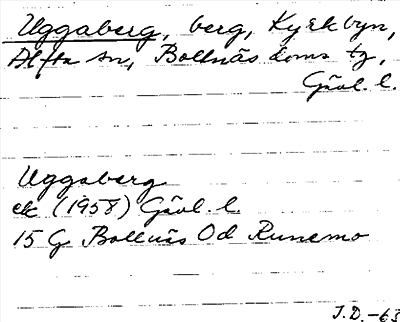 Uggaberg, berg, Kyrkbyn,
Alfta sn, Bollnäs doms tg,
Gävl. l.
Uggaberg
ek (1958) Gävl. l.
15 G Bollnäs Od Runemo
J.D.-63